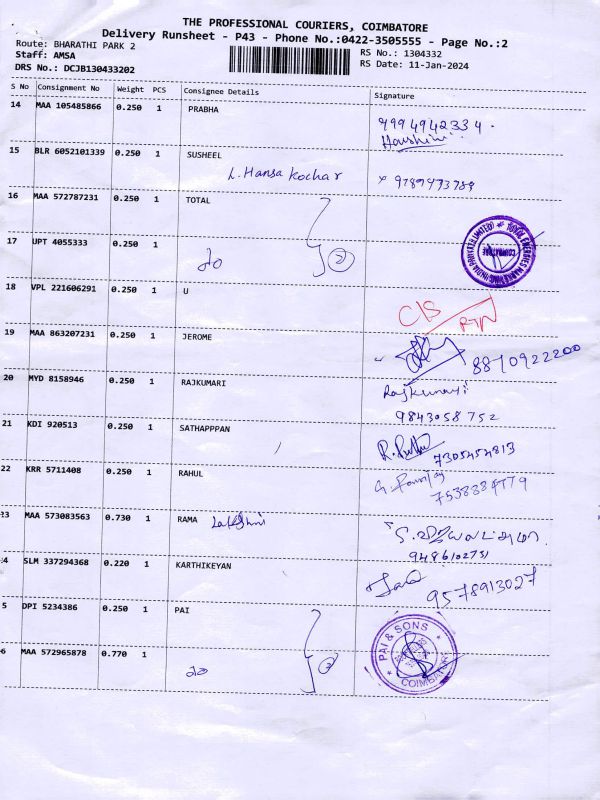 THE PROFESSIONAL COURIERS, COIMBATORE
Delivery Runsheet - P43 - Phone No.:0422-3505555 - Page No.:2
Route: BHARATHI PARK 2
RS No.: 1304332
Staff: AMSA
RS Date: 11-Jan-2024
DRS No.: DCJB130433202
S No Consignment No Weight PCS Consignee Details Signature
14 MAA 105485866 0.250 1 PRABHA
9994942334.
Harshini
15 BLR 6052101339 0.250 1 SUSHEEL
L. Hansa Kochar
9789973788
16 MAA 572787231 0.250 1 TOTAL
COIMBATORE
17 UPT 4055333 0.250 1
do 2
18 VPL 221606291 0.250 1 U
C/S
RTN
19 MAA 863207231 0.250 1 JEROME
8870922200
20 MYD 8158946 0.250 1 RAJKUMARI
Rajkumari
9843058752
21 KDI 920513 0.250 1 SATHAPPPAN
7305454813
22 KRR 5711408 0.250 1 RAHUL
23 MAA 573083563 0.730 1 RAMA Lakshmi
9486102751
4 SLM 337294368 0.220 1 KARTHIKEYAN
9578913027
5 DPI 5234386 0.250 1 PAI
PAI & SONS
COIMBATORE
6 MAA 572965878 0.770 1
do 2